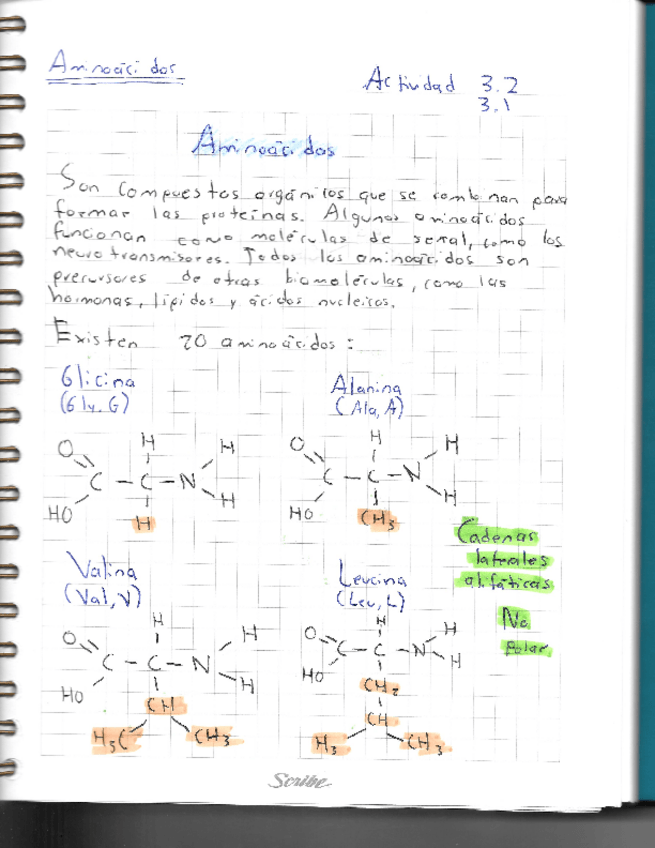 Aminoácidos
Actividad 3.2
3.1
Aminoácidos
Son compuestos orgánicos que se combinan para
formar las proteínas. Algunos aminoácidos
funcionan como moléculas de señal, como los
neurotransmisores. Todos los aminoácidos son
precursores de otras biomoléculas, como las
hormonas, lípidos y ácidos nucleicos.
Existen 20 aminoácidos:
Glicina
(Gly, G)
Alanina
(Ala, A)
O H H
C - C - N
HO H H
O H H
C - C - N
HO CH3 H
Cadenas
laterales
alifáticas
No
polar
Valina
(Val, V)
Leucina
(Leu, L)
O H H
C - C - N
HO H
CH
H3C CH3
O H H
C - C - N
HO H
CH2
CH
H3 CH3
Scribe